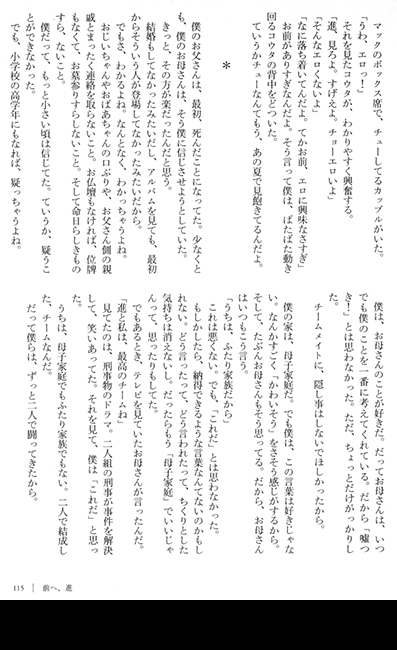 マックのボックス席で、チューしてるカップルがいた。
「うわ、エロっ！」
それを見たコウタが、わかりやすく興奮する。
「進、見ろよ。すげえよ。チョーエロいよ」
「そんなエロくないよ」
「なに落ち着いてんだよ。てかお前、エロに興味なさすぎ」
お前がありすぎなんだよ。そう言って僕は、ばたばた動き
回るコウタの背中をどついた。
ていうかチューなんてもう、あの夏で見飽きてるんだよ。
＊
僕のお父さんは、最初、死んだことになってた。少なくと
も、僕のお母さんは、そう僕に信じさせようとしていた。
きっと、その方が楽だったんだと思う。
結婚もしてなかったみたいだし、アルバムを見ても、最初
からそういう人が登場してなかったみたいだから。
でもさ、わかるよね。なんとなく、わかっちゃうよね。
おじいちゃんやおばあちゃんの口ぶりや、お父さん側の親
戚とまったく連絡を取らないこと。お仏壇もなければ、位牌
もなくて、お墓参りすらしないこと。そして命日らしきもの
すら、ないこと。
僕だって、もっと小さい頃は信じてた。ていうか、疑うこ
とができなかった。
でも、小学校の高学年にもなれば、疑っちゃうよね。
僕は、お母さんのことが好きだ。だってお母さんは、いつ
でも僕のことを一番に考えてくれている。だから「嘘つ
き！」とは思わなかった。ただ、ちょっとだけがっかりし
た。
チームメイトに、隠し事はしないでほしかったから。
僕の家は、母子家庭だ。でも僕は、この言葉は好きじゃな
い。なんかすごく「かわいそう」をさそう感じがするから。
そして、たぶんお母さんもそう思ってる。だから、お母さん
はいつもこう言う。
「うちは、ふたり家族だから」
これは悪くない。でも、「これだ」とは思わなかった。
もしかしたら、納得できるような言葉なんてないのかもし
れない。どう言ったって、どう言われたって、ちくりとした
気持ちは消えないし。だったらもう「母子家庭」でいいじゃ
んって、思ったりもしてた。
でもあるとき、テレビを見ていたお母さんが言ったんだ。
「進と私は、最高のチームね」
見てたのは、刑事物のドラマ。二人組の刑事が事件を解決
して、笑いあってた。それを見て、僕は「これだ」と思っ
た。
うちは、母子家庭でもふたり家族でもない。二人で結成し
た、チームなんだ。
だって僕らは、ずっと二人で闘ってきたから。
115 | 前へ、進